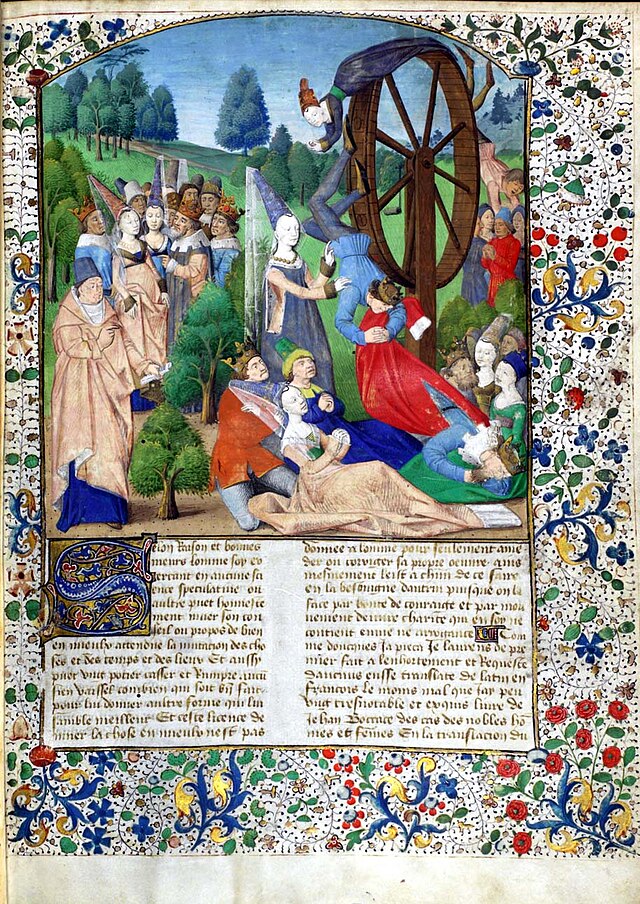 Selon raison et bonnes
meurs lomme soy ex
ercant en aucune sci
ence speculative ou
aultre puet honneste
ment muer son con
seil ou propos de bien
en mieulx attendue la mutation des cho
ses et des temps et des lieux Et aussi
puet ung potier casser et rompre aucun
sien vaissel combien quil soit bien fait
pour lui donner aultre forme qui lui
semble meilleure Et ceste licence de
muer la chose en mieulx nest pas
donnee a lomme pour seulement ame
der ou corriger sa propre oeuvre ains
mesmement leist a chun de ce faire
en la besoingne dautrui puisque on la
face par bonte de couraige et par mou
vement de vraie charite qui en soy ne
contient envie ne arrogance Com
me doncques Ja pieca Je laurens de pre
mier fait a lenhortement et Requeste
daucuns eusse translate de latin en
francois le moins mal que jay peu
Ung tresnotable et exquis livre de
Jehan Boccace des cas des nobles hom
mes et femmes En la translation du